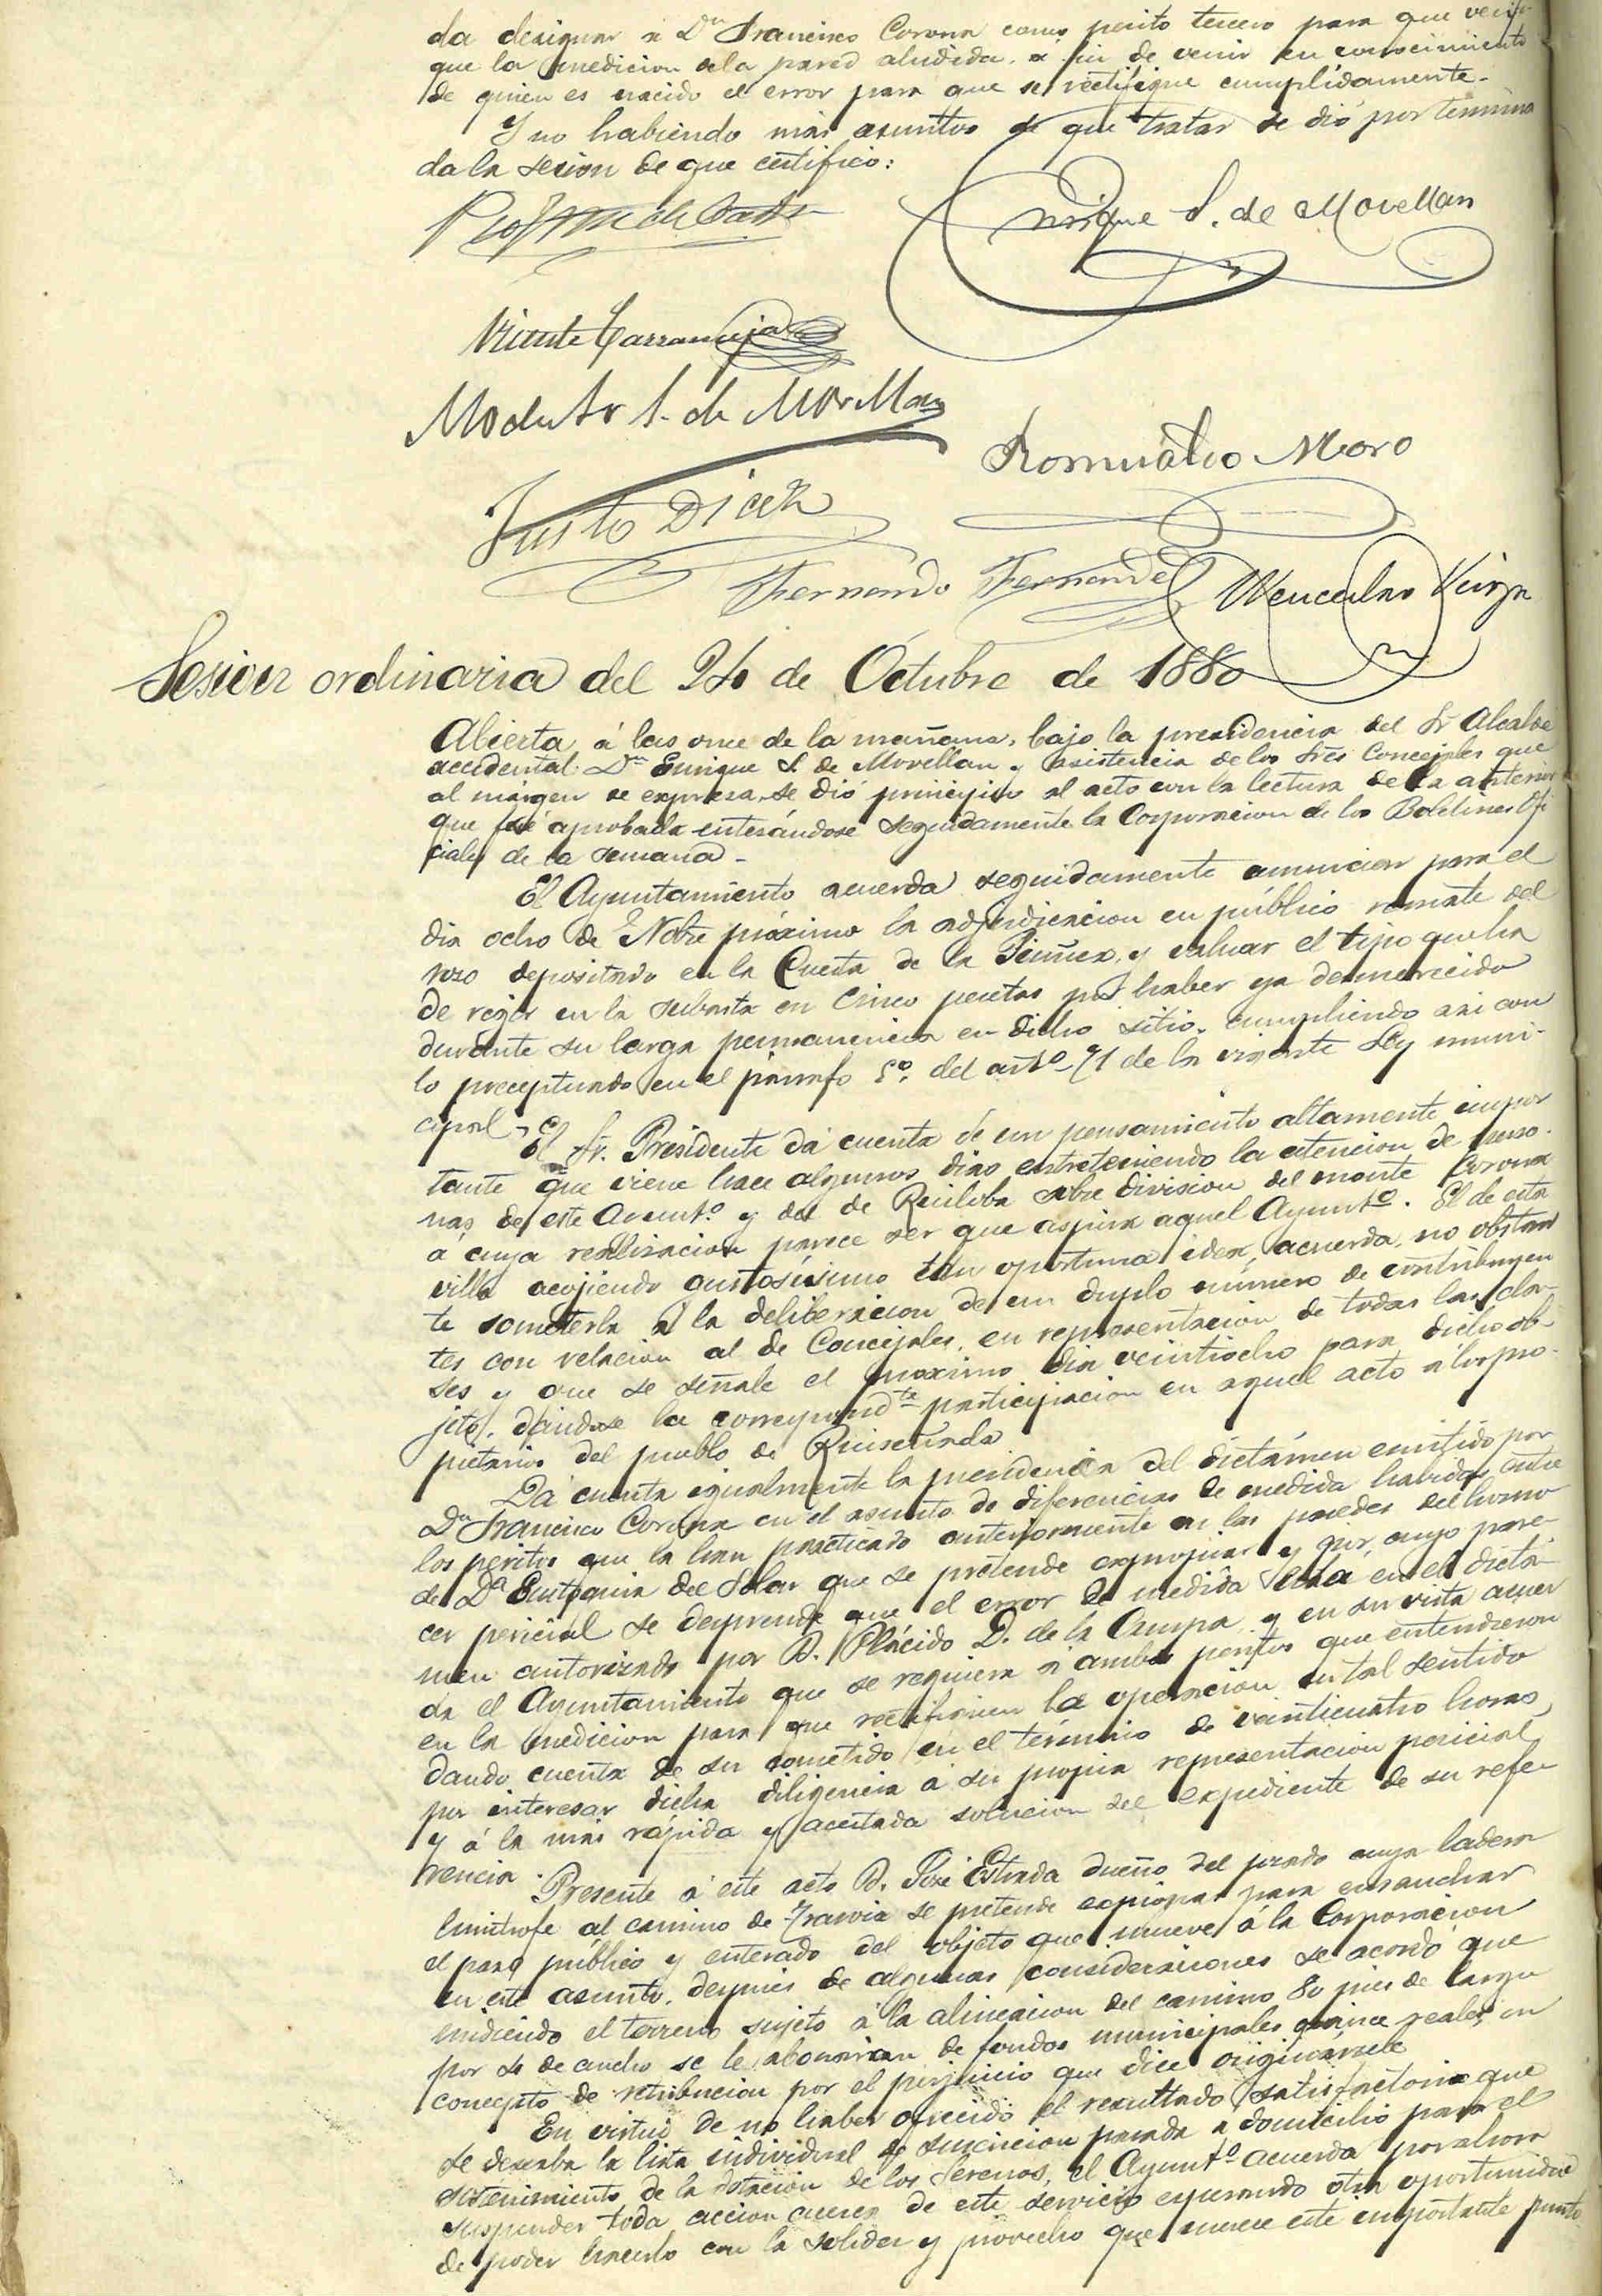 da designar a Dn Francisco Corona como perito tercero para que verifi
que la medicion dela pared aludida, a fin de venir en conocimiento
de quien es nacido el error para que se rectifique cumplidamente.
Y no habiendo más asuntos de que tratar se dió por termina
da la sesion de que certifico:
Enrique S. de Movellan
Vicente Carranceja
Modesto S. de Movellan
Romualdo Moro
Justo Diaz
Fernando Fernandez
Wenceslao Veirga
Sesion ordinaria del 24 de Octubre de 1880
Abierta á las once de la mañana, bajo la presidencia del Sr Alcalde
accidental Dn Enrique S. de Movellan y asistencia de los Sres Concejales que
al márgen se expresa, se dió principio al acto con la lectura de la anterior
que fué aprobada enterándose seguidamente la Corporacion de los Boletines Ofi
ciales de la semana.
El Ayuntamiento acuerda seguidamente anunciar para el
dia ocho de Nobre próximo la adjudicacion en público remate del
rozo depositado en la Cuesta de la y evaluar el tipo que ha
de regir en la subasta en cinco pesetas por haber ya desmerecido
durante su larga permanencia en dicho sitio, cumpliendo asi con
lo preceptuado en el párrafo 5º. del artº. 71 de la vigente Ley muni-
cipal.
El Sr. Presidente dá cuenta de un pensamiento altamente impor
tante que viene hace algunos dias entreteniendo la atencion de perso-
nas de este Ayuntº. y del de Ruiloba sobre division del monte Corona
á cuya realizacion parece ser que aspira aquel Ayuntº. El de esta
villa acojiendo gustosísimo tan oportuna idea, acuerda, no obstan
te someterla á la deliberacion de un duplo número de contribuyen
tes con relacion al de Concejales, en representacion de todas las cla-
ses y que se señale el próximo dia veintiocho para dicho ob-
jeto, dándose la correspondte participacion en aquel acto á los pro-
pietarios del pueblo de Ruiseñada.
Dá cuenta igualmente la presidencia del dictámen emitido por
Dn Francisco Corona en el asunto de diferencias de medida habidas entre
los peritos que la han practicado anteriormente en las paredes del horno
de Dª Eutiquia del Solar que se pretende expropiar y por cuyo pare-
cer pericial se desprende que el error de medida está en el dictá-
men autorizado por D. Plácido D. de la Campa y en su vista acuer
da el Ayuntamiento que se requiera á ambos peritos que entendieron
en la medicion para que rectifiquen la operacion en tal sentido
dando cuenta de su cometido en el término de veinticuatro horas,
por interesar dicha diligencia á su propia representacion pericial
y á la más rápida y acertada solucion del expediente de su refe-
rencia.
Presente á este acto D. José Estrada dueño del prado cuya ladera
limitrofe al camino de se pretende expropiar para ensanchar
el paso público y enterado del objeto que mueve á la Corporacion
en este asunto, despues de algunas consideraciones se acordó que
midiendo el terreno sujeto á la alineacion del camino 80 pies de largo
por de ancho se le abonarian de fondos municipales quince reales en
concepto de retribucion por el perjuicio que dice originársele
En virtud de no haber ofrecido el resultado satisfactorio que
se deseaba la lista individual de suscricion pasada a domicilio para el
sostenimiento de la dotacion de los Serenos, el Ayuntº acuerda por ahora
suspender toda accion acerca de este servicio esperando otra oportunidad
de poder hacerlo con la solidez y provecho que merece este importante punto